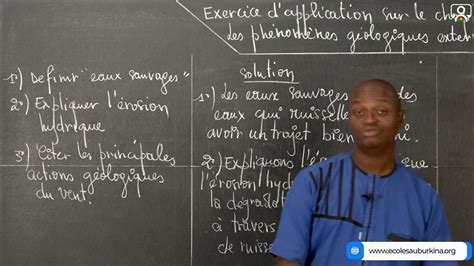 Exercice d'application sur le ch
des phénomènes géologiques exter
1°) Définir "eaux sauvages"
2°) Expliquer l'érosion
hydrique
3°) Citer les principales
actions géologiques
du vent.
solution
1°) Les eaux sauvages des
eaux qui ruisselle
avoir un trajet bien
2°) Expliquons l'é
l'érosion hyd
la dégrada
à travers
de ruisse
www.ecolesauburkina.org